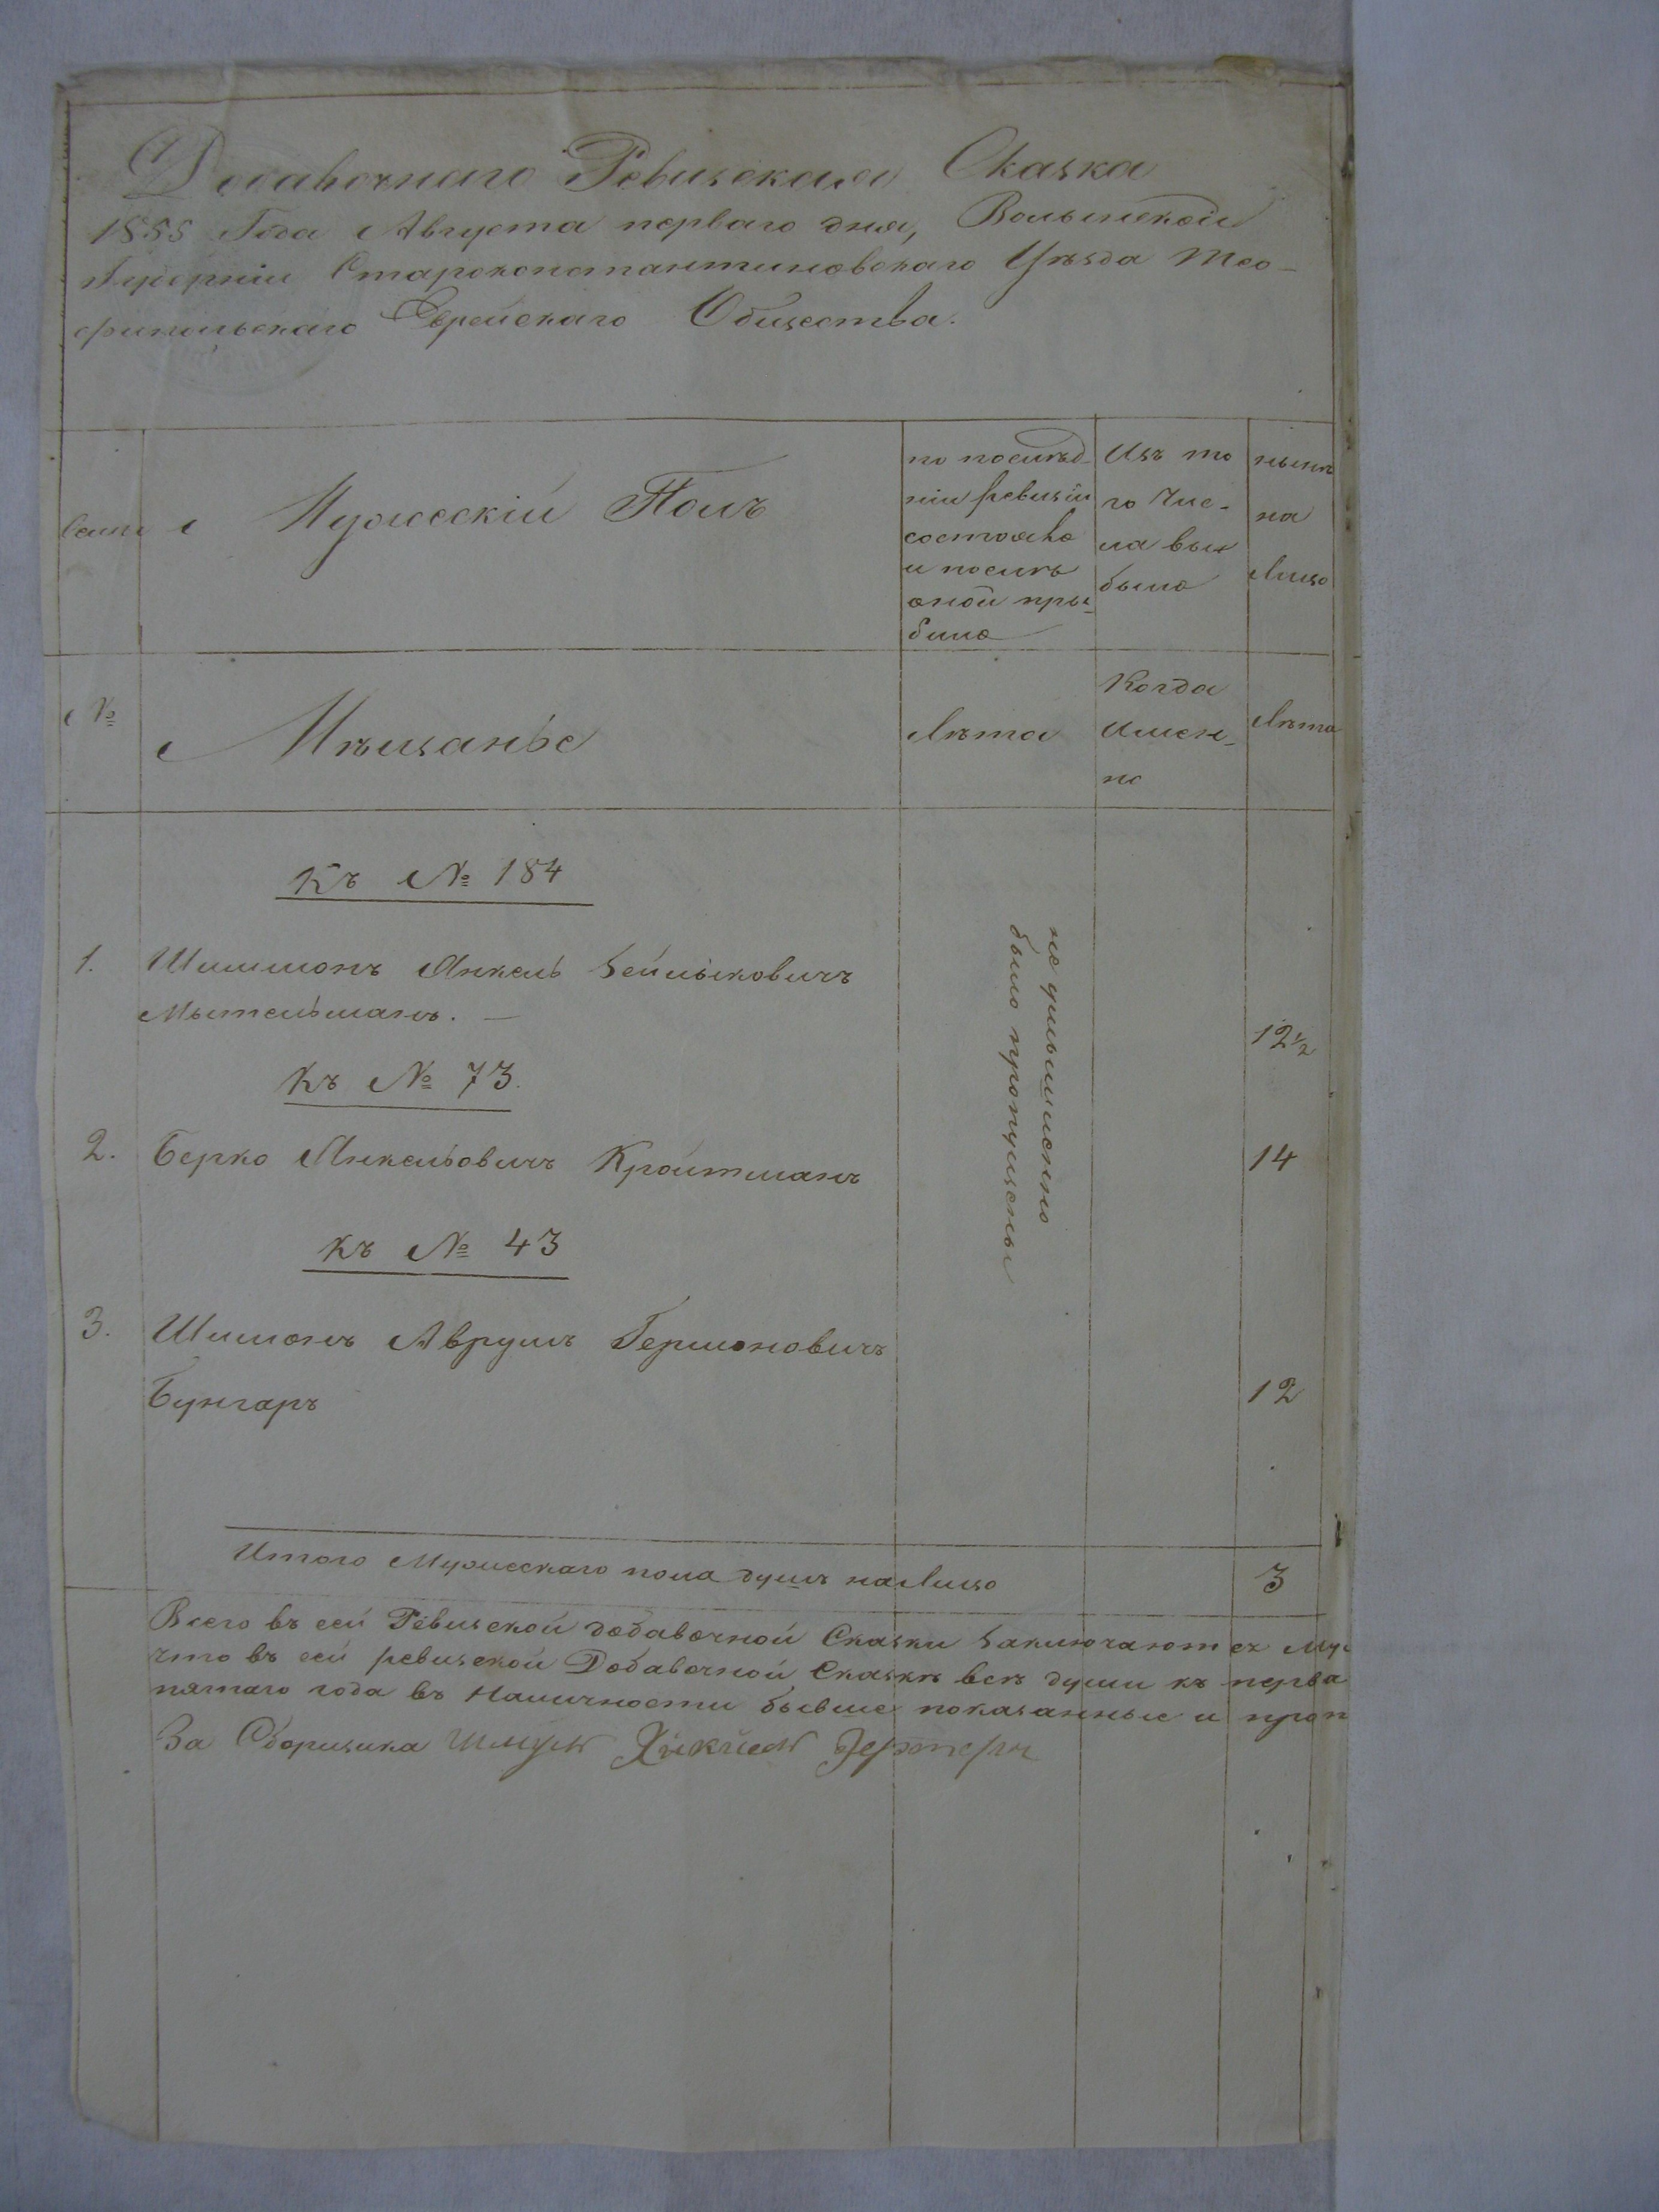 Добавочнаго Ревизская Сказка
1855 Года Августа перваго дня, Волынской
Губерніи Староконстантиновскаго Уѣзда Тео-
фипольскаго Еврейскаго Общества.
Мужескій Полъ
по послѣд-
ніи ревизіи
состояло
и послѣ
оной при-
было
Изъ то
го Чис-
ла вы
было
нынѣ
на
лицо
№
Мѣщанье
Лѣта
Когда
Имен-
но
Лѣта
Къ № 184
1. Шимонъ Янкель Зейликовичъ
Мытельманъ. —
12½
Къ № 73.
2. Берко Янкельовичъ Кройтманъ
14
Къ № 43
3. Шимонъ Аврумъ Гершоновичъ
Бунгаръ
12
не умышленно
было пропущены
Итого Мужескаго пола душъ налицо
3
Всего въ сей Ревизской добавочной Сказки Заключаются Му
что въ сей ревизской Добавочной Сказкѣ всѣ души къ перва
пятаго года въ Наличности бывше показанные и проп
За Сборщика Шмуль